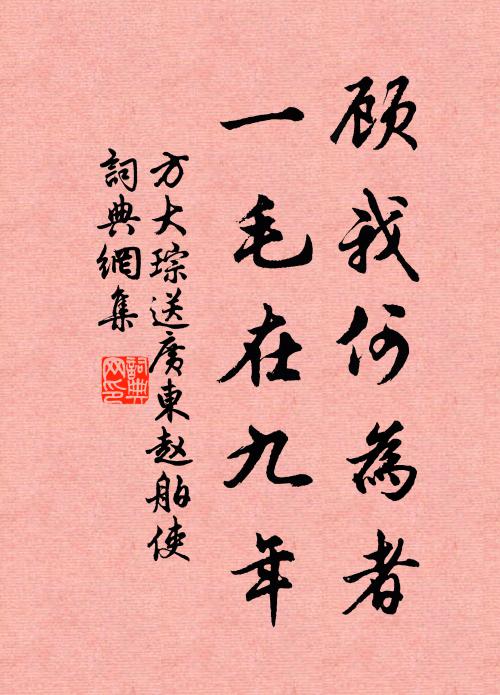 顾我何為者
一毛在九年
方大琮送廣東赵舶使
詞典網集
詞典網印